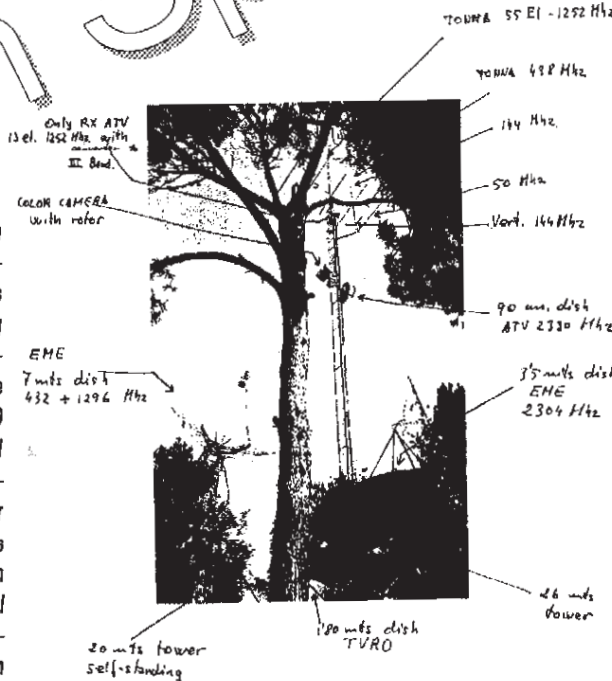 TONNA 55 El - 1252 Mhz
TONNA 438 Mhz
144 Mhz.
50 Mhz
Vert. 144 Mhz
90 cm. dish
ATV 2330 Mhz
3'5 mts dish
EME
2304 Mhz
26 mts
tower
1'80 mts dish
TVRO
20 mts tower
self-standing
EME
7 mts dish
432 + 1296 Mhz
COLOR CAMERA
with rotor
Only RX ATV
13 el. 1252 Mhz. with
III Band.